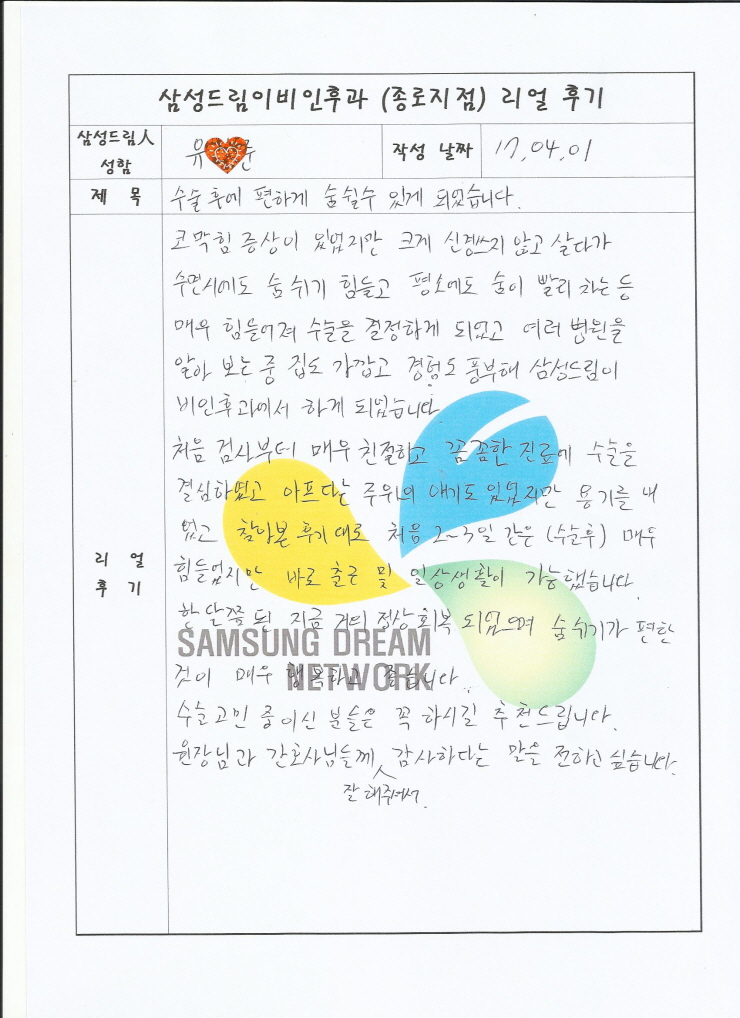 삼성드림이비인후과 (종로지점) 리얼 후기
삼성드림人 성함
유 준
작성 날짜
17.04.01
제 목
수술 후에 편하게 숨쉴수 있게 되었습니다.
리 얼
후 기
코막힘 증상이 있었지만 크게 신경쓰지 않고 살다가
수면시에도 숨 쉬기 힘들고 평소에도 숨이 빨리 차는 등
매우 힘들어져 수술을 결정하게 되었고 여러 병원을
알아 보는 중 집도 가깝고 경험도 풍부해 삼성드림이
비인후과에서 하게 되었습니다
처음 검사부터 매우 친절하고 꼼꼼한 진료에 수술을
결심하였고 아프다는 주위의 얘기도 있었지만 용기를 내
었고 참학본 후기 대로 처음 2~3일 간은 (수술후) 매우
힘들었지만 바로 출근 및 일상생활이 가능했습니다
한 달쯤 된 지금 거의 정상회복 되었으며 숨쉬기가 편한
것이 매우 행복하고 좋습니다.
수술고민 중이신 분들은 꼭 하시길 추천드립니다.
원장님과 간호사님들께 감사하다는 말을 전하고 싶습니다.
잘 해주셔서.
SAMSUNG DREAM
NETWORK